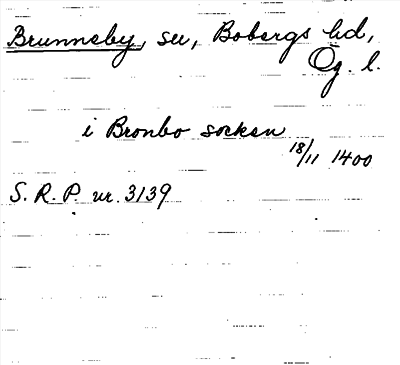 Brunnsby, sn, Bobergs hd,
Ög. l.
i Bronbo socken
18/11 1400
S. R. P. nr. 3139